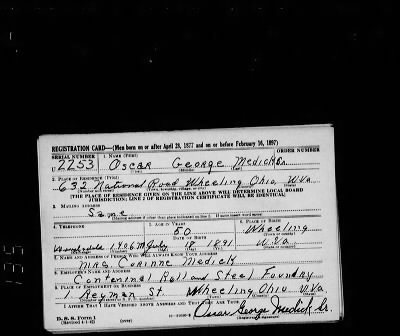 REGISTRATION CARD—(Men born on or after April 28, 1877 and on or before February 16, 1897)
SERIAL NUMBER 1. NAME (Print) ORDER NUMBER
U 2253 Oscar George Medick Sr.
(First) (Middle) (Last)
2. PLACE OF RESIDENCE (Print)
635 National Road Wheeling Ohio W.Va
[THE PLACE OF RESIDENCE GIVEN ON THE LINE ABOVE WILL DETERMINE LOCAL BOARD
JURISDICTION; LINE 2 OF REGISTRATION CERTIFICATE WILL BE IDENTICAL]
3. MAILING ADDRESS
Same
[Mailing address if other than place indicated on line 2. If same insert word same]
4. TELEPHONE 5. AGE IN YEARS 6. PLACE OF BIRTH
50 Wheeling
DATE OF BIRTH
July 18 1891 W.Va.
7. NAME AND ADDRESS OF PERSON WHO WILL ALWAYS KNOW YOUR ADDRESS
Mrs Corinne Medick
8. EMPLOYER'S NAME AND ADDRESS
Continental Roll and Steel Foundry
9. PLACE OF EMPLOYMENT OR BUSINESS
1. Heyman St Wheeling Ohio W.Va.
I AFFIRM THAT I HAVE VERIFIED ABOVE ANSWERS AND THAT THEY ARE TRUE.
D. S. S. Form 1
(Revised 4-1-42) (over) Oscar George Medick Sr.